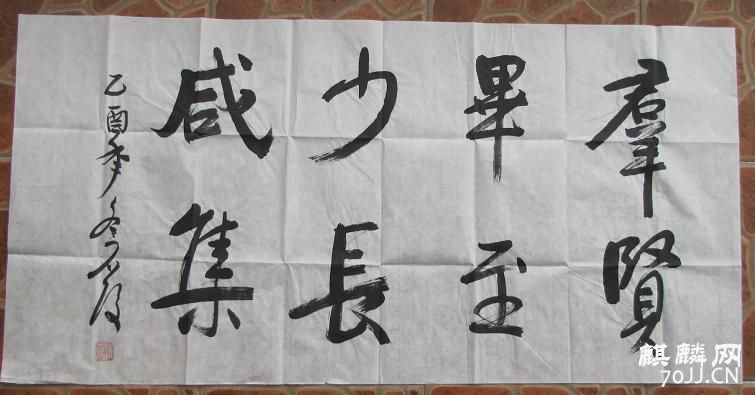 羣賢
畢至
少長
咸集
乙酉季冬
麒麟网
70JJ.CN